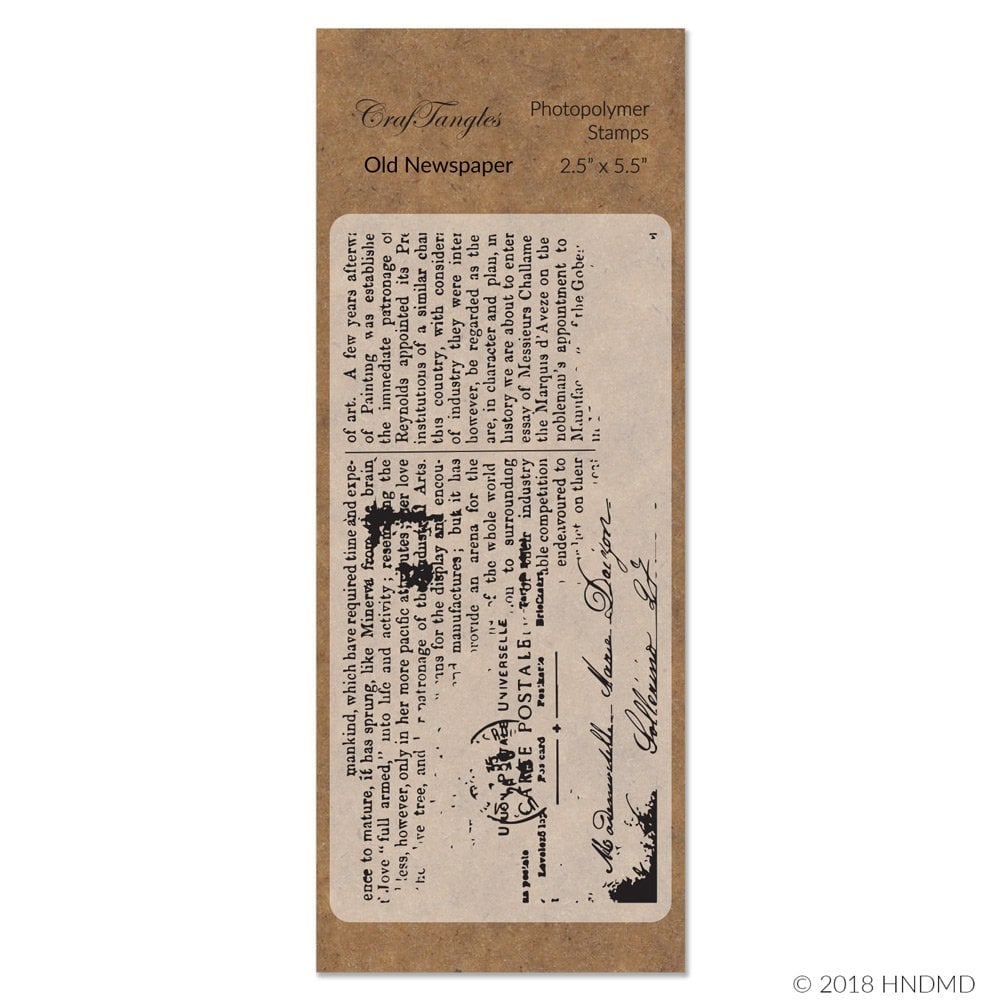 CrafTangles
Photopolymer
Stamps
Old Newspaper
2.5” x 5.5”
mankind, which have required time and expe-
ence to mature, it has sprung, like Minerva from the brain
Jove “full armed,” into life and activity; the
less, however, only in her more pacific love
tree, and patronage of the Arts.
for the display and encou-
manufactures; but it has
provide an arena for the
of the whole world
to surrounding
industry
able competition
endeavoured to
on their
of art. A few years afterw
of Painting was establishe
the immediate patronage of
Reynolds appointed its Pre
institutions of a similar char
this country, with consider
of industry they were inter
however, be regarded as the
are, in character and plan, in
history we are about to enter
essay of Messieurs Challame
the Marquis d’Aveze on the
nobleman’s appointment to
the Gobe
UNION POSTALE UNIVERSELLE
CARTE POSTALE
Postkarte
Post card
Mademoiselle Marie
© 2018 HNDMD